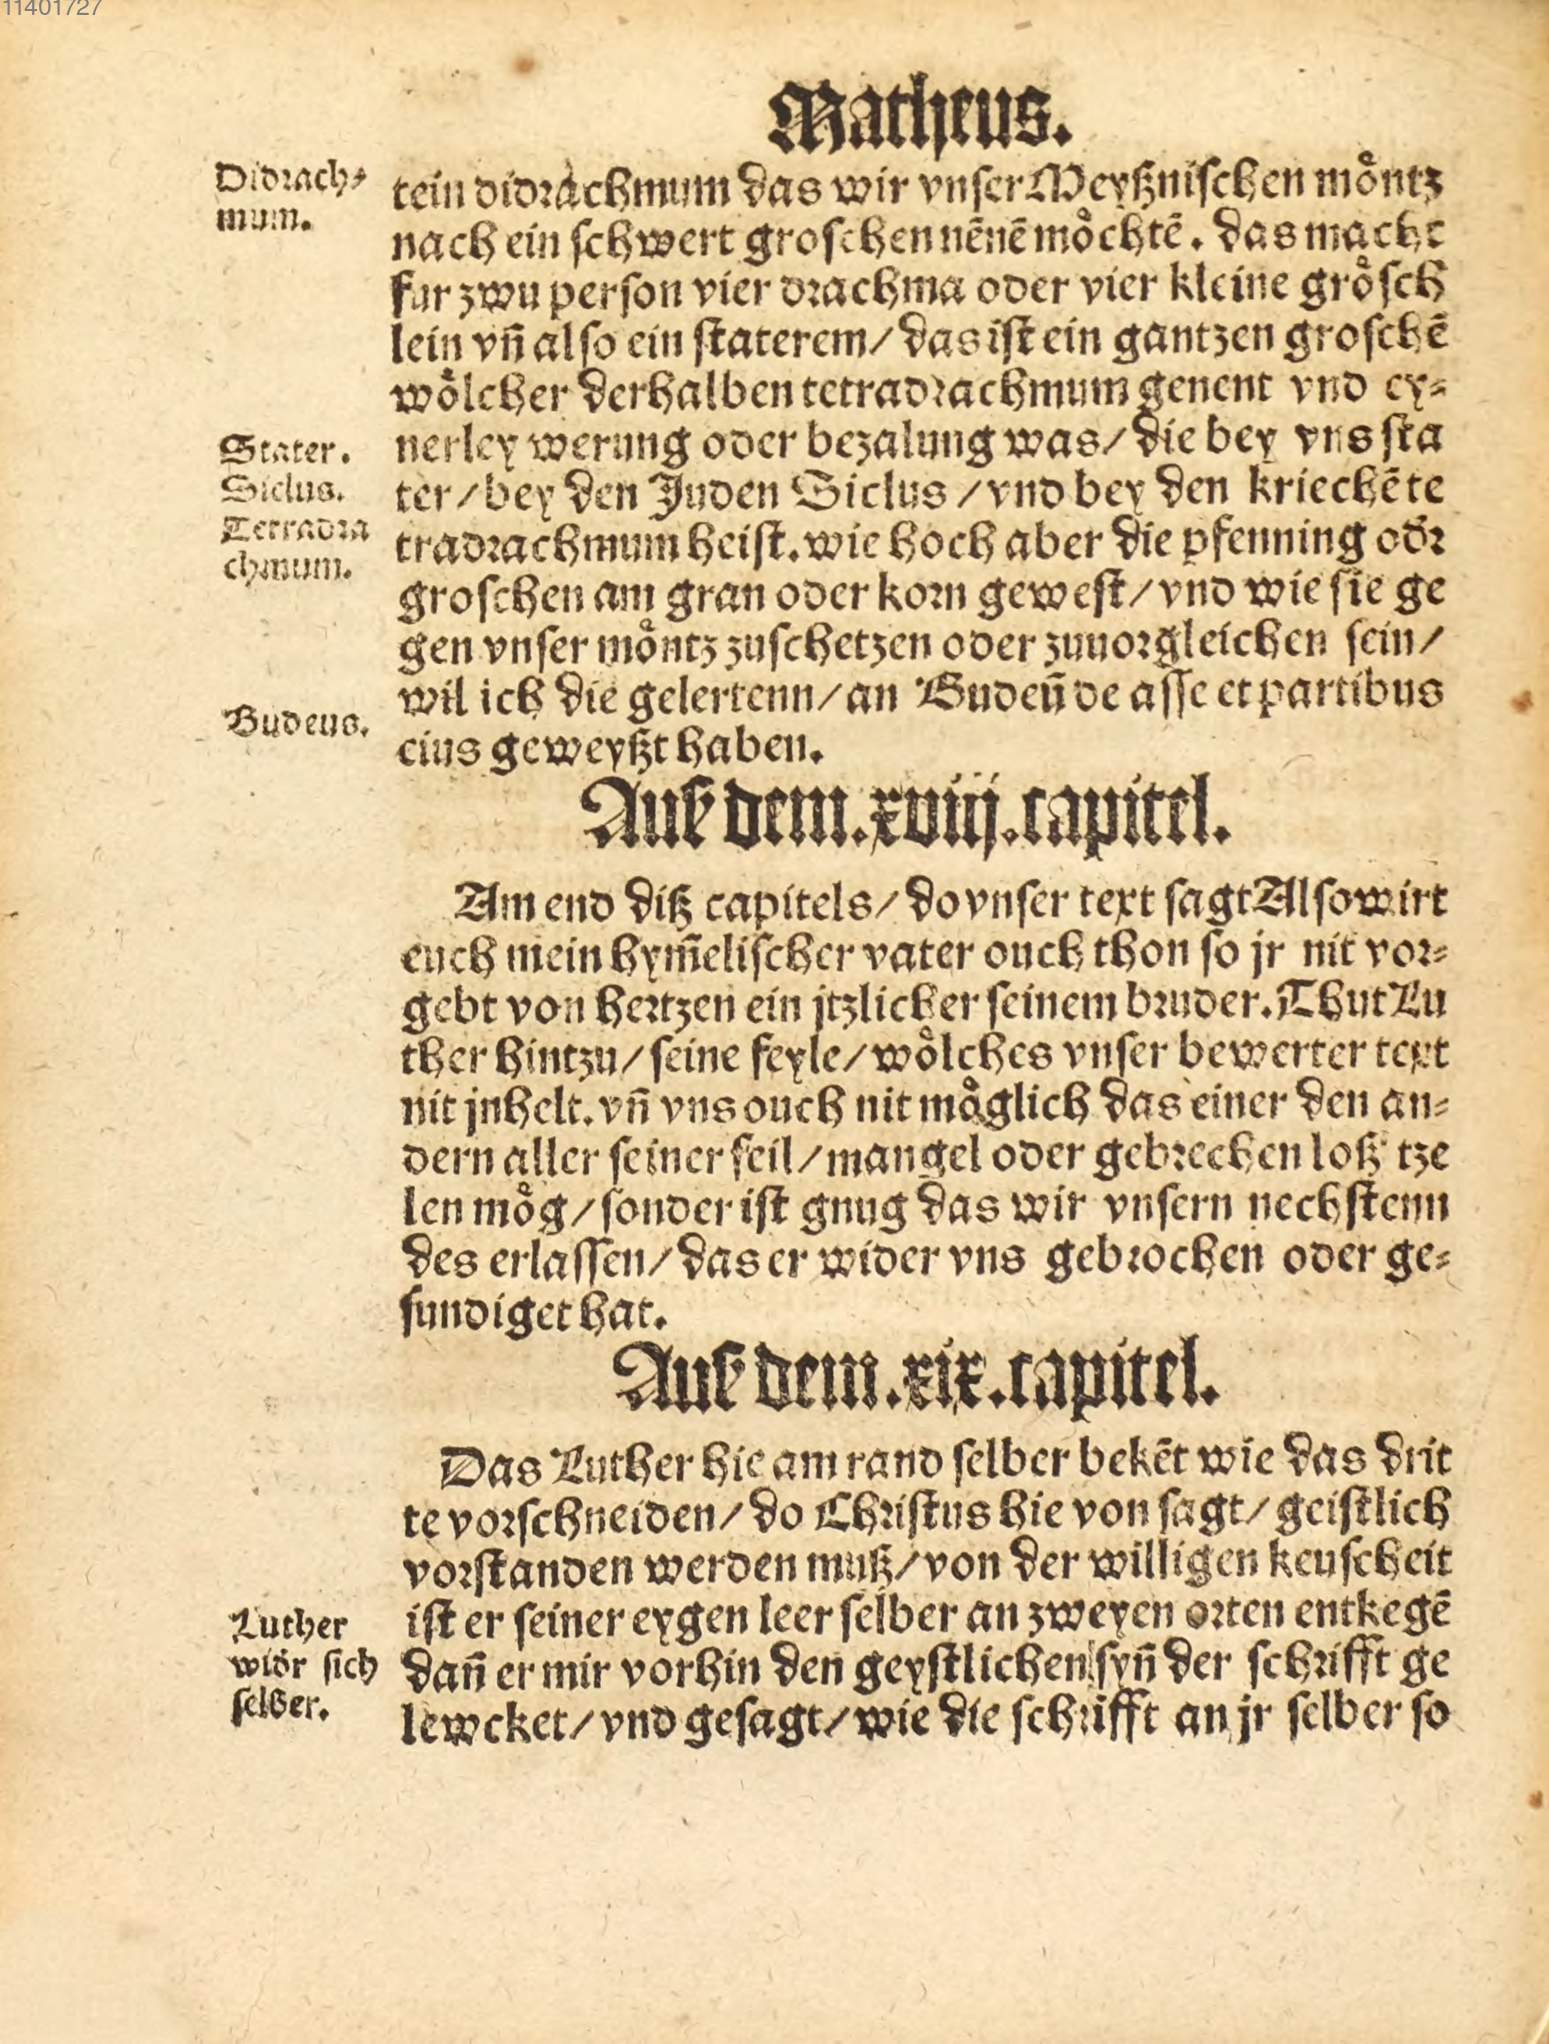 11401727
Matheus.
Didrach⸗
mum.
tein didrachmum das wir vnser Meyßnischen moͤntz
nach ein schwert groschen nēnē moͤchtē. das macht
fur zwu person vier drachma oder vier kleine groͤsch
lein vn̄ also ein staterem/ das ist ein gantzen groschē
woͤlcher derhalben tetradrachmum genent vnd ey⸗
Stater.
Siclus.
Tetradra
chmum.
nerley werung oder bezalung was/ die bey vns sta
ter/ bey den Juden Siclus/ vnd bey den kriechē te
tradrachmum heist. wie hoch aber die pfenning odr
groschen am gran oder korn gewest/ vnd wie sie ge
gen vnser moͤntz zuschetzen oder zuuorgleichen sein/
Budeus.
wil ich die gelertenn/ an Budeū de asse et partibus
eius geweyßt haben.
Auß dem .xviij. capitel.
Am end diß capitels/ do vnser text sagt Also wirt
euch mein hym̄elischer vater ouch thon so jr nit vor⸗
gebt von hertzen ein jtzlicher seinem bruder. Thut Lu
ther hintzu/ seine feyle/ woͤlches vnser bewerter text
nit jnhelt. vn̄ vns ouch nit moͤglich das einer den an⸗
dern aller seiner feil/ mangel oder gebrechen loß tze
len moͤg/ sonder ist gnug das wir vnsern nechstenn
des erlassen/ das er wider vns gebrochen oder ge⸗
sundiget hat.
Auß dem .xix. capitel.
Das Luther hie am rand selber bekēt wie das drit
te vorschneiden/ do Christus hie von sagt/ geistlich
vorstanden werden muß/ von der willigen keuscheit
Luther
widr sich
selber.
ist er seiner eygen leer selber an zweyen orten entkegē
dan̄ er mir vorhin den geystlichen syn̄ der schrifft ge
lewcket/ vnd gesagt/ wie die schrifft an jr selber so